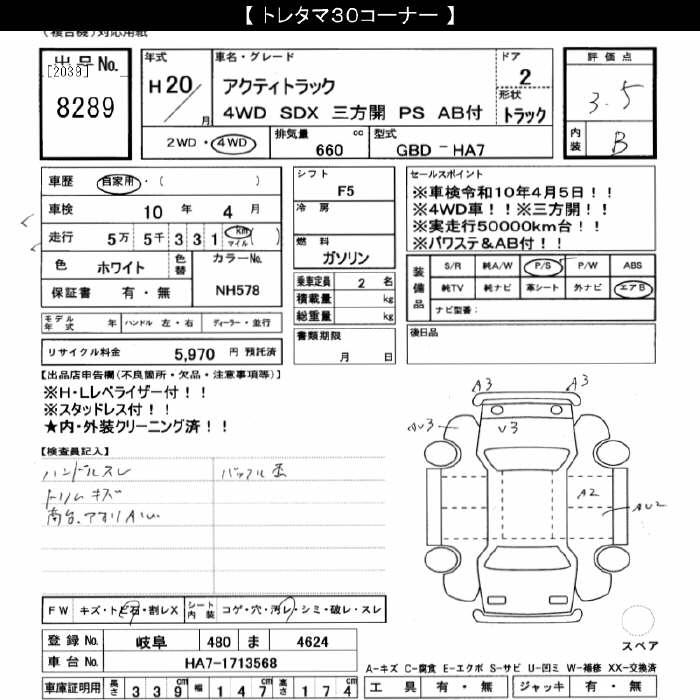 【 トレタマ30コーナー 】
(複合機)対応用紙
出品No.
[2039]
8289
年式
H20/
月
車名・グレード
アクティトラック
4WD SDX 三方開 PS AB付
ドア
2
形状
トラック
2WD・4WD
排気量
cc
660
型式
GBD-HA7
評価点
3.5
内装
B
車歴 自家用・( )
車検 10 年 4 月
走行 5万 5千 3 3 1 km マイル ( )
色 ホワイト 色替 カラーNo.
保証書 有・無 NH578
シフト
F5
冷房
燃料
ガソリン
乗車定員 2 名
積載量 kg
総重量 kg
書類期限
月 日
セールスポイント
※車検令和10年4月5日!!
※4WD車!!※三方開!!
※実走行50000km台!!
※パワステ&AB付!!
装備品
S/R 純A/W P/S P/W ABS
純TV 純ナビ 革シート 外ナビ エアB
ナビ型番:
後日品
モデル年式 年 ハンドル 左・右 ディーラー・並行
リサイクル料金 5,970 円 預託済
【出品店申告欄(不良箇所・欠品・注意事項等)】
※H・Lレベライザー付!!
※スタッドレス付!!
★内・外装クリーニング済!!
【検査員記入】
ハンドルスレ
トリムキズ
荷台、アオリAU
バックル歪
A3
A3
AU3
V3
A2
AU2
FW キズ・トビ石・割レX シート内装 コゲ・穴・汚レ・シミ・破レ・スレ
登録No. 岐阜 480 ま 4624
車台No. HA7-1713568
車庫証明用 長さ 3 3 9 cm 幅 1 4 7 cm 高さ 1 7 4 cm
スペア
A-キズ C-腐食 E-エクボ S-サビ U-凹ミ W-補修 XX-交換済
工具 有・無 ジャッキ 有・無